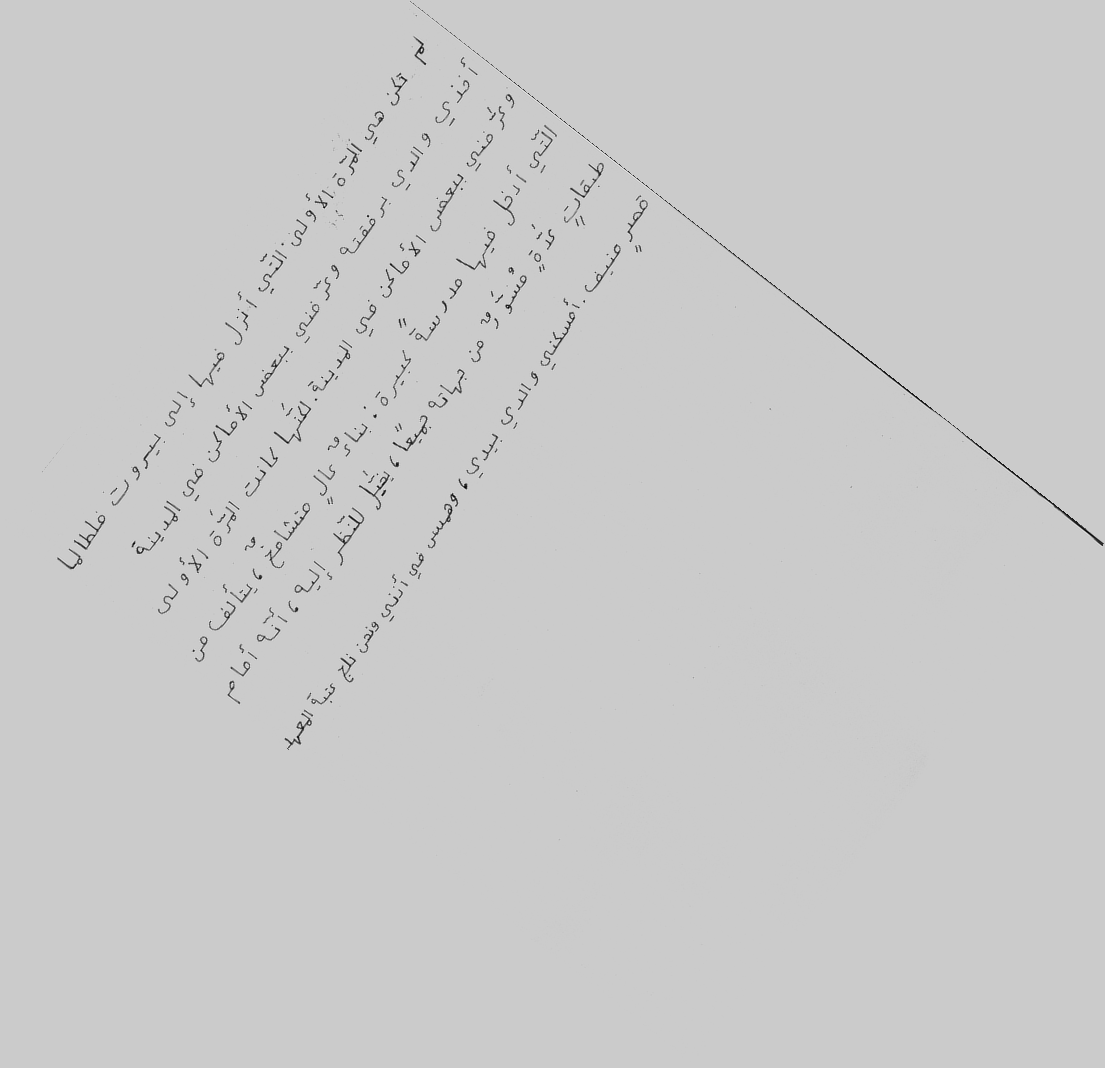 لم تكن هي المرّة الأولى التّي أنزل فيها إلى بيروت فلطالما
أخذي والدي برفقته وعرّفني ببعض الأماكن في المدينة
وعرَّفني ببعض الأماكن في المدينة. لكنَّها كانت المرَّة الأولى
التّي أدخل فيها مدرسةً كبيرة: بناءٌ عالٍ متشامخٌ، يتألف من
طبقاتٍ عدَّةٍ مُسَوَّرٌ من جهاته جميعًا، يخيَّل للنّظر إليه، أنّه أمام
قصرٍ منيف. أمسكني والدي بيدي، وهمس في أذني ونحن نلج عتبة المعهد